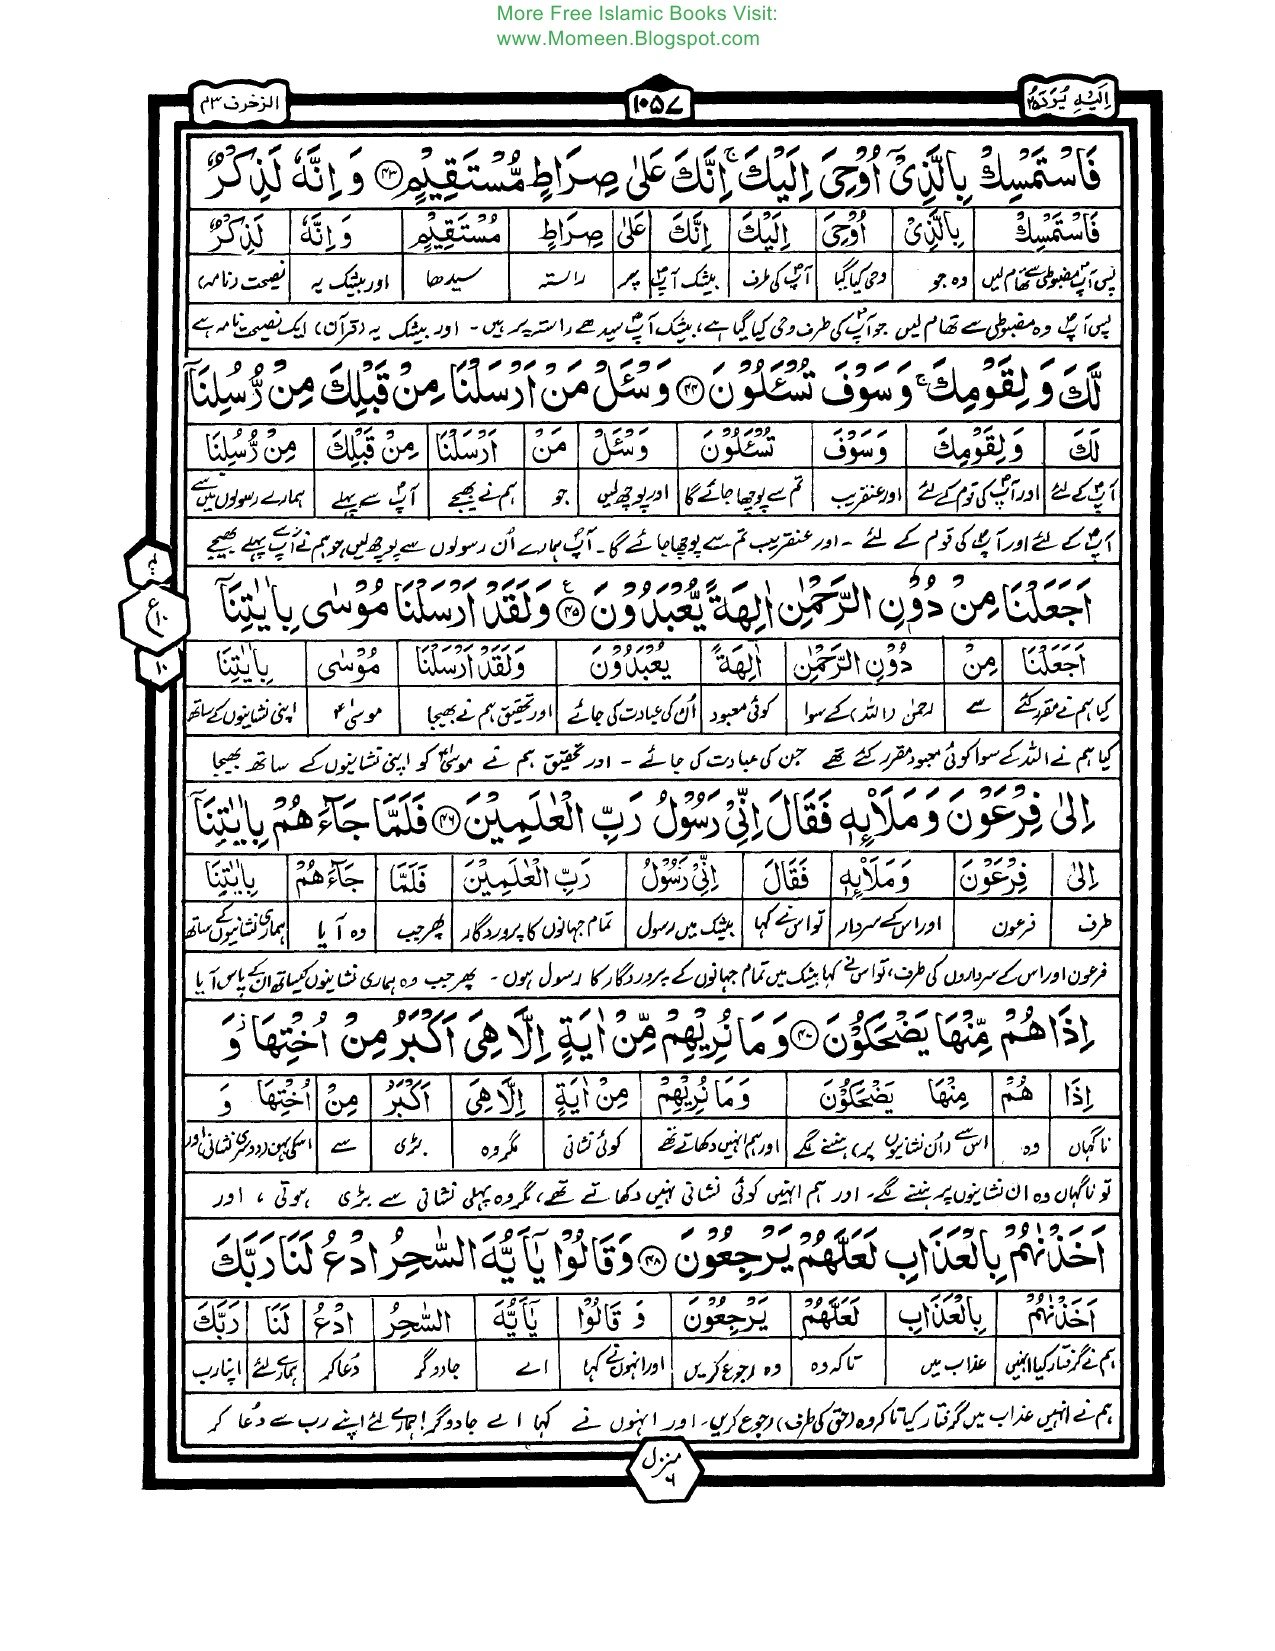 More Free Islamic Books Visit:
www.Momeen.Blogspot.com
اِلَیْهِ یُرَدُّ ۲۵
۱۰۵۷
الزخرف ۴۳
فَاسْتَمْسِكْ بِالَّذِیْۤ اُوْحِیَ اِلَیْكَ ۚ اِنَّكَ عَلٰی صِرَاطٍ مُّسْتَقِیْمٍ ﴿۴۳﴾ وَ اِنَّهٗ لَذِكْرٌ
فَاسْتَمْسِكْ بِالَّذِیْۤ اُوْحِیَ اِلَیْكَ اِنَّكَ عَلٰی صِرَاطٍ مُسْتَقِیْمٍ وَ اِنَّهٗ لَذِكْرٌ
پس آپؐ مضبوطی سے تھام لیں وہ جو وحی کیا گیا آپؐ کی طرف بیشک آپؐ پر راستہ سیدھا اور بیشک یہ نصیحت (نامہ)
پس آپؐ وہ مضبوطی سے تھام لیں جو آپؐ کی طرف وحی کیا گیا ہے، بیشک آپؐ سیدھے راستہ پر ہیں۔ اور بیشک یہ (قرآن) ایک نصیحت نامہ ہے
لَّكَ وَ لِقَوْمِكَ ۚ وَ سَوْفَ تُسْـَٔلُوْنَ ﴿۴۴﴾ وَ سْـَٔلْ مَنْ اَرْسَلْنَا مِنْ قَبْلِكَ مِنْ رُّسُلِنَاۤ
لَكَ وَ لِقَوْمِكَ وَ سَوْفَ تُسْـَٔلُوْنَ وَ سْـَٔلْ مَنْ اَرْسَلْنَا مِنْ قَبْلِكَ مِنْ رُّسُلِنَا
آپؐ کے لئے اور آپؐ کی قوم کے لئے اور عنقریب تم سے پوچھا جائے گا اور پوچھ لیں جو ہم نے بھیجے آپؐ سے پہلے ہمارے رسولوں میں سے
آپؐ کے لئے اور آپؐ کی قوم کے لئے ۔ اور عنقریب تم سے پوچھا جائے گا۔ آپؐ ہمارے اُن رسولوں سے پوچھ لیں جو ہم نے آپؐ سے پہلے بھیجے
اَجَعَلْنَا مِنْ دُوْنِ الرَّحْمٰنِ اٰلِهَةً یُّعْبَدُوْنَ ﴿۴۵﴾ ع وَ لَقَدْ اَرْسَلْنَا مُوْسٰی بِاٰیٰتِنَاۤ
ع ۱۰
۱۰
اَجَعَلْنَا مِنْ دُوْنِ الرَّحْمٰنِ اٰلِهَةً یُعْبَدُوْنَ وَ لَقَدْ اَرْسَلْنَا مُوْسٰی بِاٰیٰتِنَا
کیا ہم نے مقرر کئے سے رحمٰن (اللہ) کے سوا کوئی معبود اُن کی عبادت کی جائے اور تحقیق ہم نے بھیجا موسیٰؑ اپنی نشانیوں کے ساتھ
کیا ہم نے اللہ کے سوا کوئی معبود مقرر کئے تھے جن کی عبادت کی جائے ۔ اور تحقیق ہم نے موسیٰؑ کو اپنی نشانیوں کے ساتھ بھیجا
اِلٰی فِرْعَوْنَ وَ مَلَا۟ئِهٖ فَقَالَ اِنِّیْ رَسُوْلُ رَبِّ الْعٰلَمِیْنَ ﴿۴۶﴾ فَلَمَّا جَآءَهُمْ بِاٰیٰتِنَاۤ
اِلٰی فِرْعَوْنَ وَ مَلَا۟ئِهٖ فَقَالَ اِنِّیْ رَسُوْلُ رَبِّ الْعٰلَمِیْنَ فَلَمَّا جَآءَهُمْ بِاٰیٰتِنَا
طرف فرعون اور اس کے سردار تو اس نے کہا بیشک میں رسول تمام جہانوں کا پروردگار پھر جب وہ آیا ہماری نشانیوں کے ساتھ
فرعون اور اس کے سرداروں کی طرف، تو اس نے کہا بیشک میں تمام جہانوں کے پروردگار کا رسول ہوں۔ پھر جب وہ ہماری نشانیوں کیساتھ ان کے پاس آیا
اِذَا هُمْ مِّنْهَا یَضْحَكُوْنَ ﴿۴۷﴾ وَ مَا نُرِیْهِمْ مِّنْ اٰیَةٍ اِلَّا هِیَ اَكْبَرُ مِنْ اُخْتِهَا ؗ وَ
اِذَا هُمْ مِنْهَا یَضْحَكُوْنَ وَ مَا نُرِیْهِمْ مِنْ اٰیَةٍ اِلَّا هِیَ اَكْبَرُ مِنْ اُخْتِهَا وَ
ناگہاں وہ اس سے (اُن نشانیوں پر) ہنسنے لگے اور ہم انہیں دکھاتے تھے کوئی نشانی مگر وہ بڑی سے اسکی بہن (دوسری نشانی) اور
تو ناگہاں وہ ان نشانیوں پر ہنسنے لگے۔ اور ہم انہیں کوئی نشانی نہیں دکھاتے تھے، مگر وہ پہلی نشانی سے بڑی ہوتی ، اور
اَخَذْنٰهُمْ بِالْعَذَابِ لَعَلَّهُمْ یَرْجِعُوْنَ ﴿۴۸﴾ وَ قَالُوْا یٰۤاَیُّهَ السّٰحِرُ ادْعُ لَنَا رَبَّكَ
اَخَذْنٰهُمْ بِالْعَذَابِ لَعَلَّهُمْ یَرْجِعُوْنَ وَ قَالُوْا یٰۤاَیُّهَ السّٰحِرُ ادْعُ لَنَا رَبَّكَ
ہم نے گرفتار کیا انہیں عذاب میں تاکہ وہ وہ رجوع کریں اور انہوں نے کہا اے جادوگر دُعا کر ہمارے لئے اپنا رب
ہم نے انہیں عذاب میں گرفتار کیا تاکہ وہ (حق کی طرف) رجوع کریں۔ اور انہوں نے کہا اے جادوگر! ہمارے لئے اپنے رب سے دُعا کر
منزل ۶